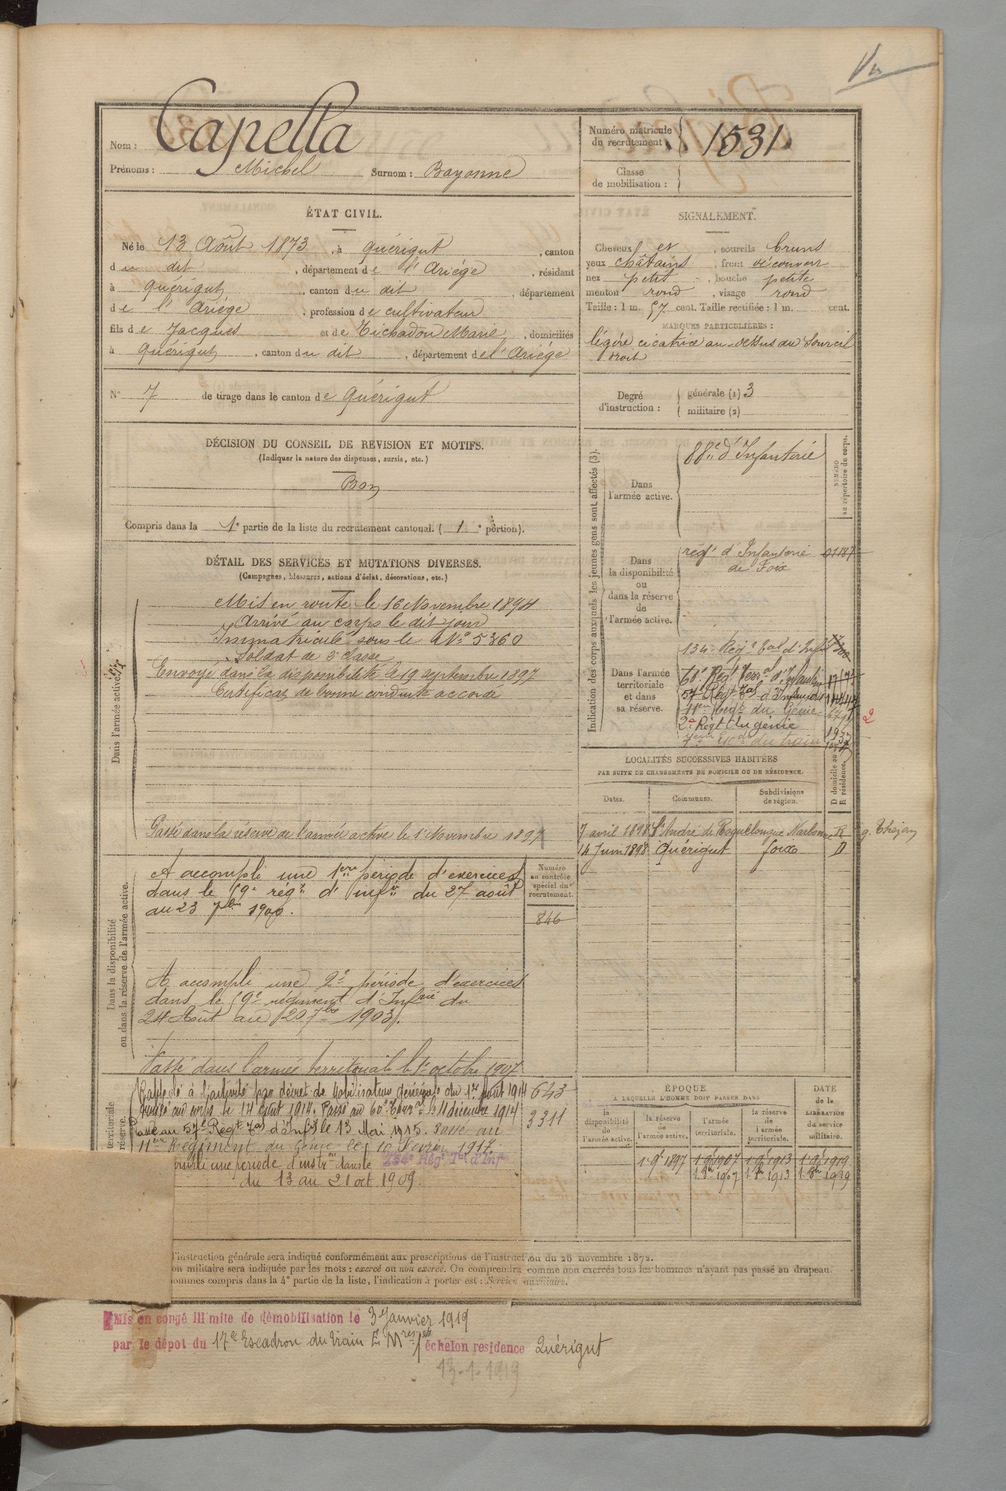 Vu
Nom : Capella
Prénoms : Michel Surnom : Bayonne
Numéro matricule du recrutement : 1531.
Classe de mobilisation :
ÉTAT CIVIL.
Né le 13 Août 1873, à Quérigut, canton
du dit, département de l'Ariège, résidant
à Quérigut, canton du dit, département
de l'Ariège, profession de cultivateur
fils de Jacques et de Tichadou Marie, domiciliés
à Quérigut, canton du dit, département de l'Ariège
N° 7 de tirage dans le canton de Quérigut
SIGNALEMENT.
Cheveux et, sourcils bruns
yeux châtains, front découvert
nez petit, bouche petite
menton rond, visage rond
Taille : 1 m. 57 cent. Taille rectifiée : 1 m. cent.
MARQUES PARTICULIÈRES :
légère cicatrice au-dessus du sourcil
droit
Degré d'instruction : générale (1) 3
militaire (2)
DÉCISION DU CONSEIL DE REVISION ET MOTIFS.
(Indiquer la nature des dispenses, sursis, etc.)
Bon
Compris dans la 1e partie de la liste du recrutement cantonal. ( 1e portion).
DÉTAIL DES SERVICES ET MUTATIONS DIVERSES.
(Campagnes, blessures, actions d'éclat, décorations, etc.)
Dans l'armée active.
Mis en route le 16 Novembre 1894
Arrivé au corps le dit jour
Immatriculé sous le N° 5360
Soldat de 2e classe
Envoyé dans la disponibilité le 19 septembre 1897
Certificat de bonne conduite accordé
Passé dans la réserve de l'armée active le 1 Novembre 1897
Indication des corps auxquels les jeunes gens sont affectés (3).
NUMÉRO au répertoire du corps.
Dans l'armée active.
88e d'Infanterie
Dans la disponibilité ou dans la réserve de l'armée active.
régt d'Infanterie 01187
de Foix
Dans l'armée territoriale et dans sa réserve.
134e Régt Tal d'Infie
60e Régt Terral d'Infanterie
57e Régt Tal d'Infanterie
11me Regt du Génie
2e Régt du génie
17eme Escon du train
2
LOCALITÉS SUCCESSIVES HABITÉES
PAR SUITE DE CHANGEMENTS DE DOMICILE OU DE RÉSIDENCE.
Dates. Communes. Subdivisions de région. D domicile ou R résidence.
7 avril 1898 St André de Roquelongue Narbonne R
14 Juin 1898 Quérigut Foix D
Dans la disponibilité ou dans la réserve de l'armée active.
A accompli une 1ère période d'exercices
dans le 59e régt d'Infie du 27 août
au 23 7bre 1900.
A accompli une 2e période d'exercices
dans le 59e régiment d'Infrie du
24 Août au 20 7bre 1903.
Passé dans l'armée territoriale le 1er octobre 1907
Numéro au contrôle spécial du recrutement.
846
643
3311
territoriale
réserve.
Rappelé à l'activité par décret de Mobilisation Générale du 1er Août 1914
au corps le 14 Août 1914. Passé au 60e Terr le 11 décembre 1914
Passé au 57e Régt Tal d'Infie le 13 Mai 1915. Passé au
11me Régiment du Génie le 10 Février 1917.
une période d'instron dans le 134e Régt Tal d'Infie
du 13 au 21 oct 1909.
ÉPOQUE
A LAQUELLE L'HOMME DOIT PASSER DANS
la disponibilité de l'armée active. la réserve de l'armée active. l'armée territoriale. la réserve de l'armée territoriale.
DATE de la LIBÉRATION du service militaire.
1 9bre 1897 1 9bre 1907 1 9bre 1913 1 9bre 1919
1 8bre 1907 1 8bre 1913 1 8bre 1919
l'instruction générale sera indiqué conformément aux prescriptions de l'instruction du 28 novembre 1872.
on militaire sera indiquée par les mots : exercé ou non exercé. On comprendra comme non exercés tous les hommes n'ayant pas passé au drapeau.
ommes compris dans la 4e partie de la liste, l'indication à porter est : Service auxiliaire.
Mis en congé illimité de démobilisation le 3 Janvier 1919
par le dépôt du 17e Escadron du train échelon résidence Quérigut
13-1-1919